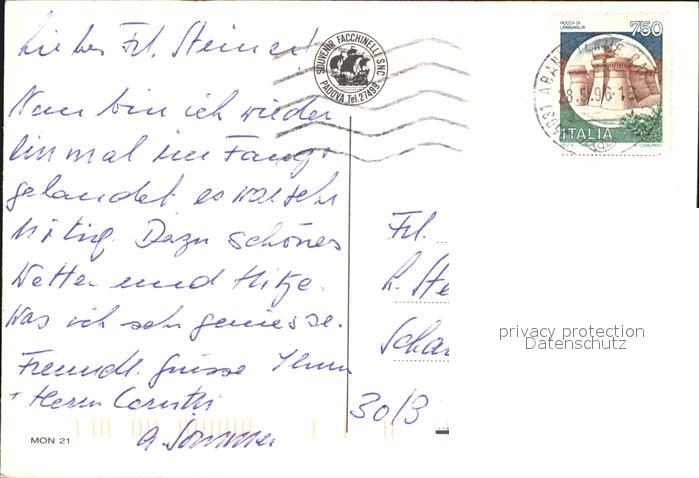 Liebes Frl. Steiner!
Nun bin ich wieder
einmal im Fango
gelandet es war sehr
nötig. Dazu schönes
Wetter und Hitze.
Was ich sehr geniesse.
Freundl. Grüsse Ihnen
+ Herrn
A. Sommer
MON 21
SOUVENIR FACCHINELLI SNC
PADOVA Tel. 27499
ROCCA DI
URBISAGLIA
750
35031 ABANO TERME
28.5.96-18
ITALIA
Frl.
Scha
30/3
privacy protection
Datenschutz